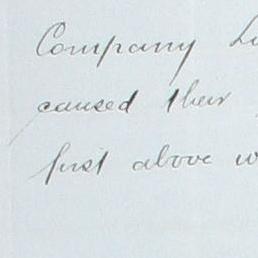 Company
caused their
first above